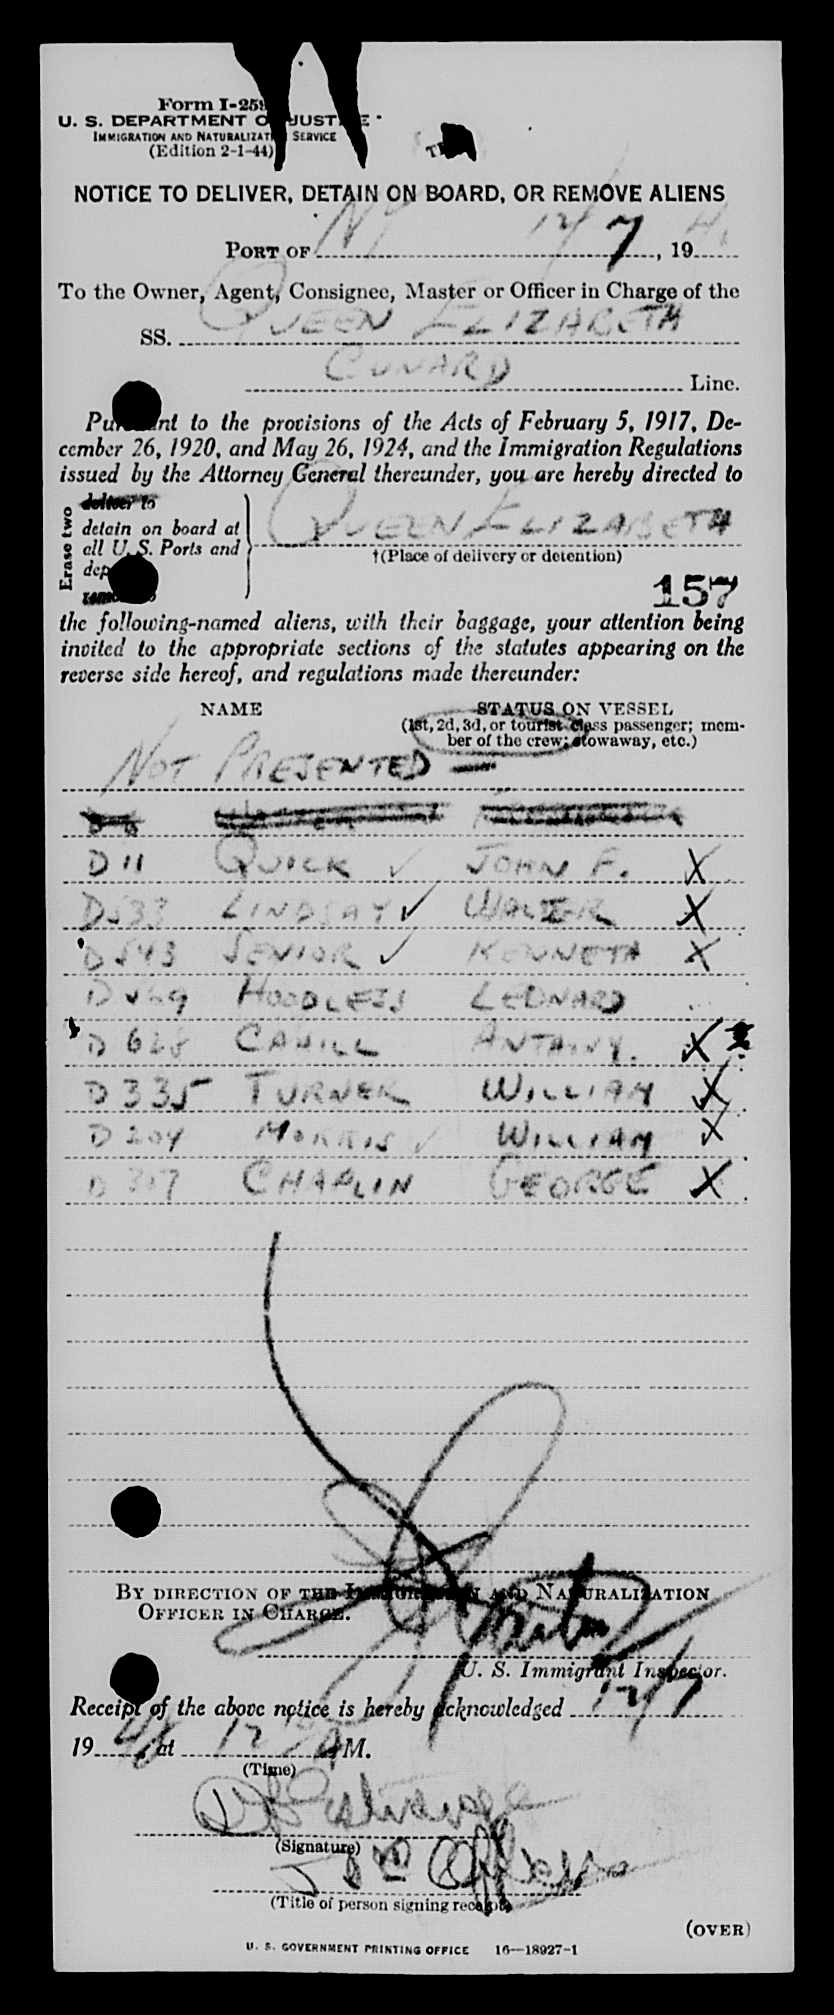 Form I-259
U. S. DEPARTMENT OF JUSTICE
IMMIGRATION AND NATURALIZATION SERVICE
(Edition 2-1-44)
NOTICE TO DELIVER, DETAIN ON BOARD, OR REMOVE ALIENS
PORT OF NY 12/7, 19
To the Owner, Agent, Consignee, Master or Officer in Charge of the
SS. QUEEN ELIZABETH
CUNARD Line.
Pursuant to the provisions of the Acts of February 5, 1917, De-
cember 26, 1920, and May 26, 1924, and the Immigration Regulations
issued by the Attorney General thereunder, you are hereby directed to
Erase two
deliver to
detain on board at
all U. S. Ports and
QUEEN ELIZABETH
†(Place of delivery or detention)
157
the following-named aliens, with their baggage, your attention being
invited to the appropriate sections of the statutes appearing on the
reverse side hereof, and regulations made thereunder:
NAME STATUS ON VESSEL
(1st, 2d, 3d, or tourist class passenger; mem-
ber of the crew; stowaway, etc.)
NOT PRESENTED —
D 11 QUICK ✓ JOHN F. X
D533 LINDSAY ✓ WALTER X
D 543 SENIOR ✓ KENNETH X
D 569 HOODLESS LEONARD
D 628 CAHILL ANTHONY. X
D 335 TURNER WILLIAM X
D 204 MORRIS ✓ WILLIAM X
D 317 CHAPLIN GEORGE X
BY DIRECTION OF THE IMMIGRATION AND NATURALIZATION
OFFICER IN CHARGE.
U. S. Immigrant Inspector.
Receipt of the above notice is hereby acknowledged 12/7
1948, at 12 M.
(Time)
(Signature)
(Title of person signing receipt)
(OVER)
U. S. GOVERNMENT PRINTING OFFICE 16—18927-1